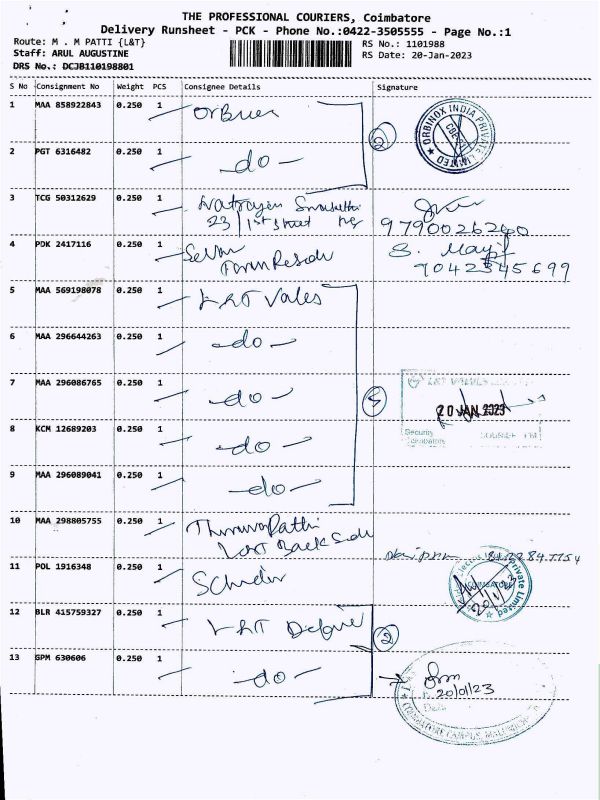 THE PROFESSIONAL COURIERS, Coimbatore
Delivery Runsheet - PCK - Phone No.:0422-3505555 - Page No.:1
Route: M . M PATTI {L&T} RS No.: 1101988
Staff: ARUL AUGUSTINE RS Date: 20-Jan-2023
DRS No.: DCJB110198801
S No Consignment No Weight PCS Consignee Details Signature
1 MAA 858922843 0.250 1 Orbinex
ORBINOX INDIA PRIVATE LIMITED
2
2 PGT 6316482 0.250 1 - do -
3 TCG 50312629 0.250 1
23 / 1st street
9790026240
4 PDK 2417116 0.250 1 Selvam
Farm
S.
7042345699
5 MAA 569198078 0.250 1 L&T Vales
6 MAA 296644263 0.250 1 - do -
7 MAA 296086765 0.250 1 - do -
5
L&T VALVES
20 JAN 2023
Security
Coimbatore
8 KCM 12689203 0.250 1 - do -
9 MAA 296089041 0.250 1 - do -
10 MAA 298805755 0.250 1
L&T Back Side
11 POL 1916348 0.250 1
Private Limited
COIMBATORE
20/1/23
12 BLR 415759327 0.250 1 L&T
2
13 GPM 630606 0.250 1 - do -
20/01/23
Date
COIMBATORE CAMPUS,